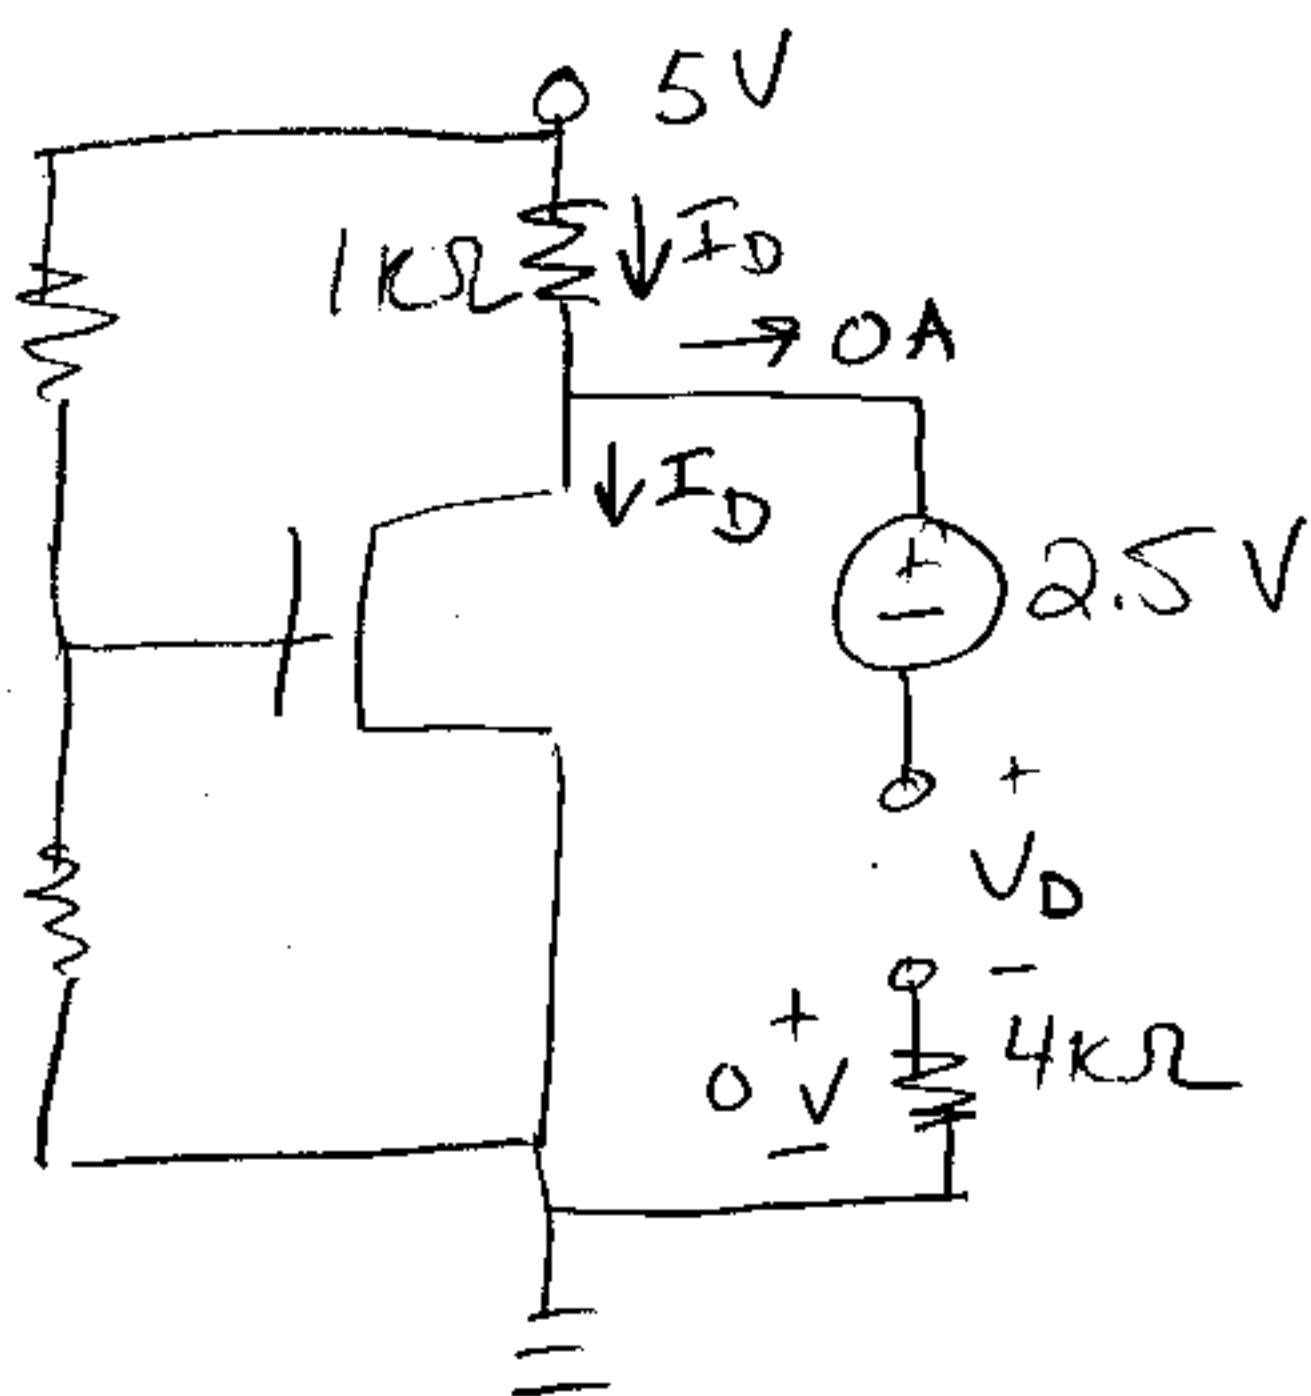 5V
1KΩ
I_D
0A
I_D
+
−
2.5V
+
V_D
−
+
0 V
−
4KΩ